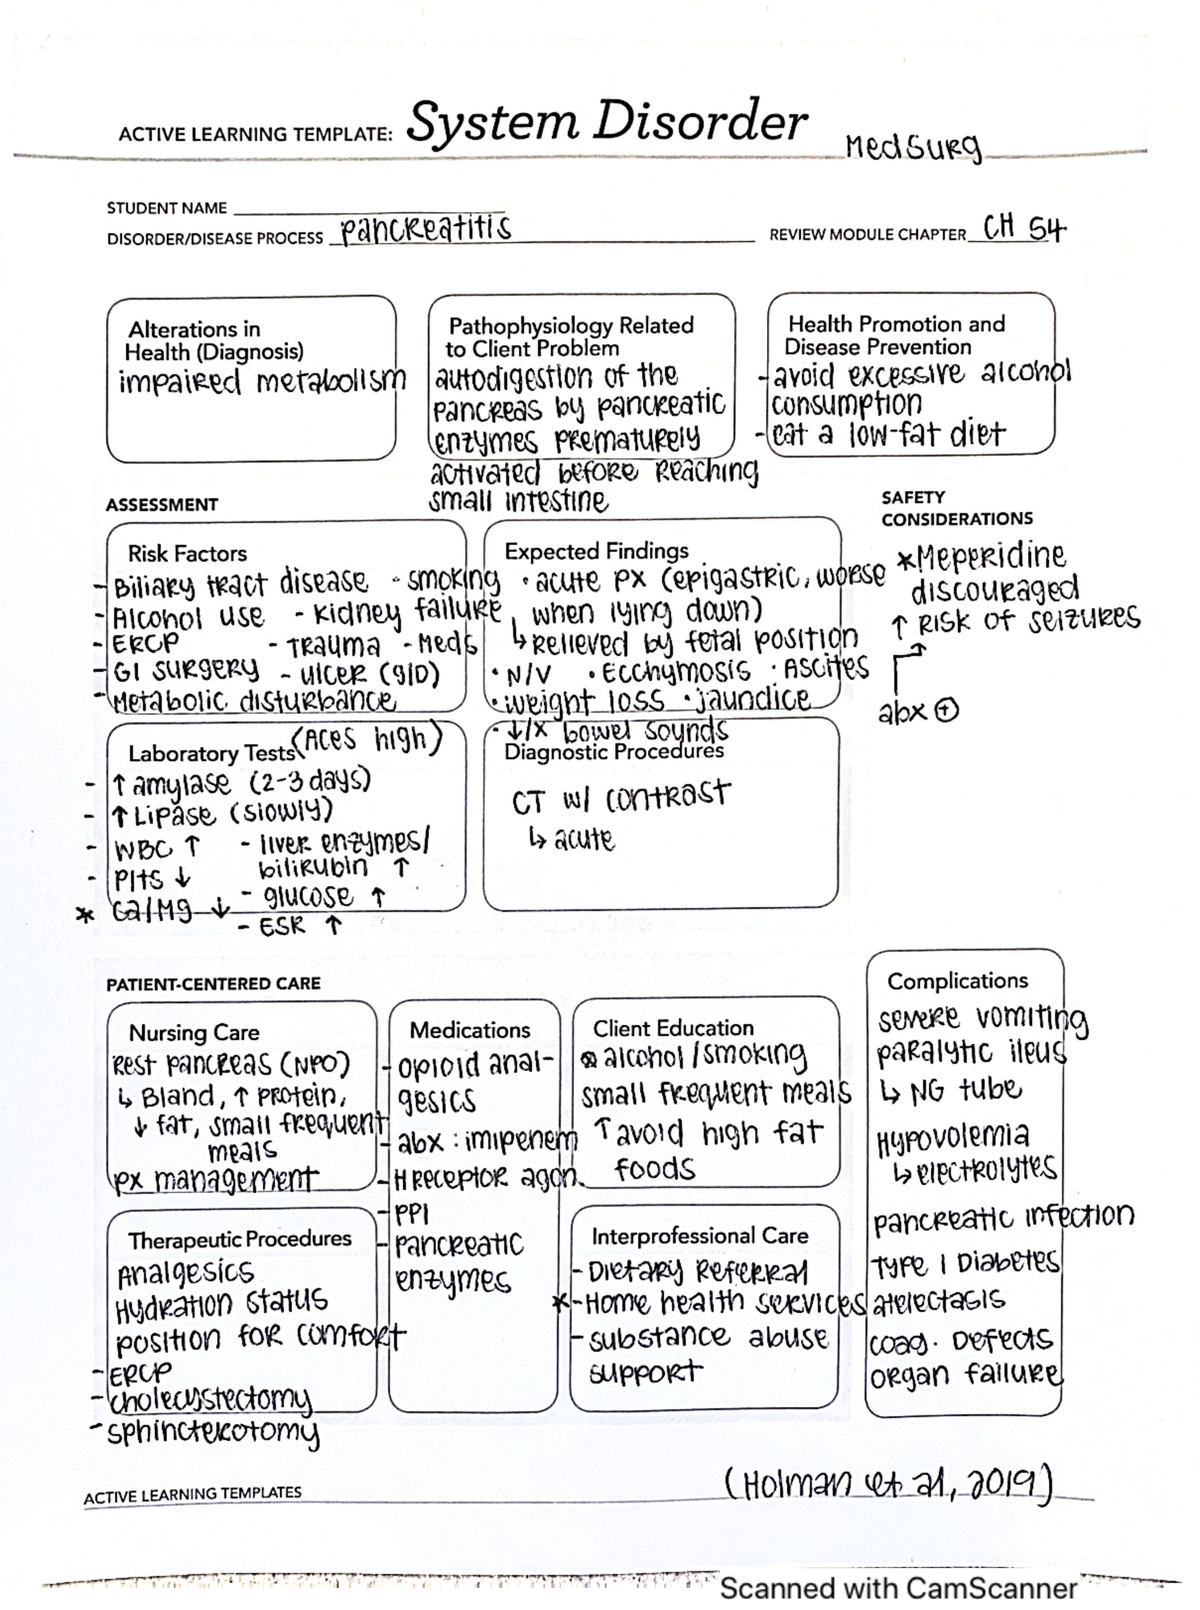 ACTIVE LEARNING TEMPLATE: System Disorder
MedSurg
STUDENT NAME
DISORDER/DISEASE PROCESS pancreatitis
REVIEW MODULE CHAPTER CH 54
Alterations in
Health (Diagnosis)
impaired metabolism
Pathophysiology Related
to Client Problem
autodigestion of the
pancreas by pancreatic
enzymes prematurely
activated before reaching
small intestine
Health Promotion and
Disease Prevention
-avoid excessive alcohol
consumption
-eat a low-fat diet
ASSESSMENT
SAFETY
CONSIDERATIONS
Risk Factors
- Biliary tract disease - smoking
- Alcohol use - kidney failure
- ERCP - Trauma - Meds
- GI surgery - ulcer (gID)
- Metabolic disturbance
Expected Findings
• acute px (epigastric, worse
when lying down)
↳ relieved by fetal position
• N/V • Ecchymosis • Ascites
• weight loss • jaundice
• ↓/x bowel sounds
*Meperidine
discouraged
↑ risk of seizures
abx ⊕
Laboratory Tests (Aces high)
- ↑ amylase (2-3 days)
- ↑ Lipase (slowly)
- WBC ↑ - liver enzymes/
bilirubin ↑
- Plts ↓
- glucose ↑
* Ca/Mg ↓
- ESR ↑
Diagnostic Procedures
CT w/ contrast
↳ acute
PATIENT-CENTERED CARE
Nursing Care
Rest pancreas (NPO)
↳ Bland, ↑ protein,
↓ fat, small frequent
meals
px management
Medications
- opioid anal-
gesics
- abx : imipenem
- H receptor agon.
- PPI
- pancreatic
enzymes
Client Education
⊗ alcohol/smoking
small frequent meals
↑ avoid high fat
foods
Complications
severe vomiting
paralytic ileus
↳ NG tube
Hypovolemia
↳ electrolytes
pancreatic infection
Type 1 Diabetes
atelectasis
coag. Defects
organ failure
Therapeutic Procedures
Analgesics
Hydration status
position for comfort
- ERCP
- cholecystectomy
- sphincterotomy
Interprofessional Care
- Dietary Referral
*- Home health services
- substance abuse
support
ACTIVE LEARNING TEMPLATES
(Holman et al, 2019)
Scanned with CamScanner